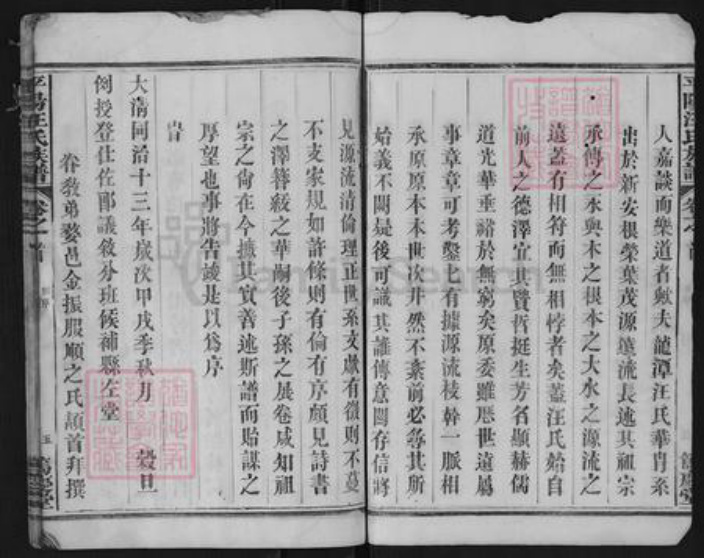 平陽汪氏族譜 卷之首
人嘉談而樂道者歟夫龍潭汪氏華胄系
出於新安根榮葉茂源遠流長述其祖宗
承傳之水與木之根本之大水之源流之
遠蓋有相符而無相悖者矣蓋汪氏始自
前人之德澤宜其賢哲挺生芳名顯赫儒
道光華垂裕於無窮矣原委雖歷世遠屬
事章章可考鑿七有據源流枝幹一脈相
承原原本本世次井然不紊前必尋其所
始義不闕是後可識其誰傳意闕存信將
見源流清倫理正世系文獻有徵則不蔓
不支家規如許條則有倫有序頗見詩書
之澤簪紱之華嗣後子孫之展卷咸知祖
宗之尚在今攄其實善述斯譜而貽謀之
厚望也事將告竣是以為序
旹
大清同治十三年歲次甲戌季秋月 穀旦
例授登仕佐郎議敘分班候補縣左堂
眷教弟婺邑金振服順之氏頓首拜撰
平陽汪氏族譜 卷之首
五